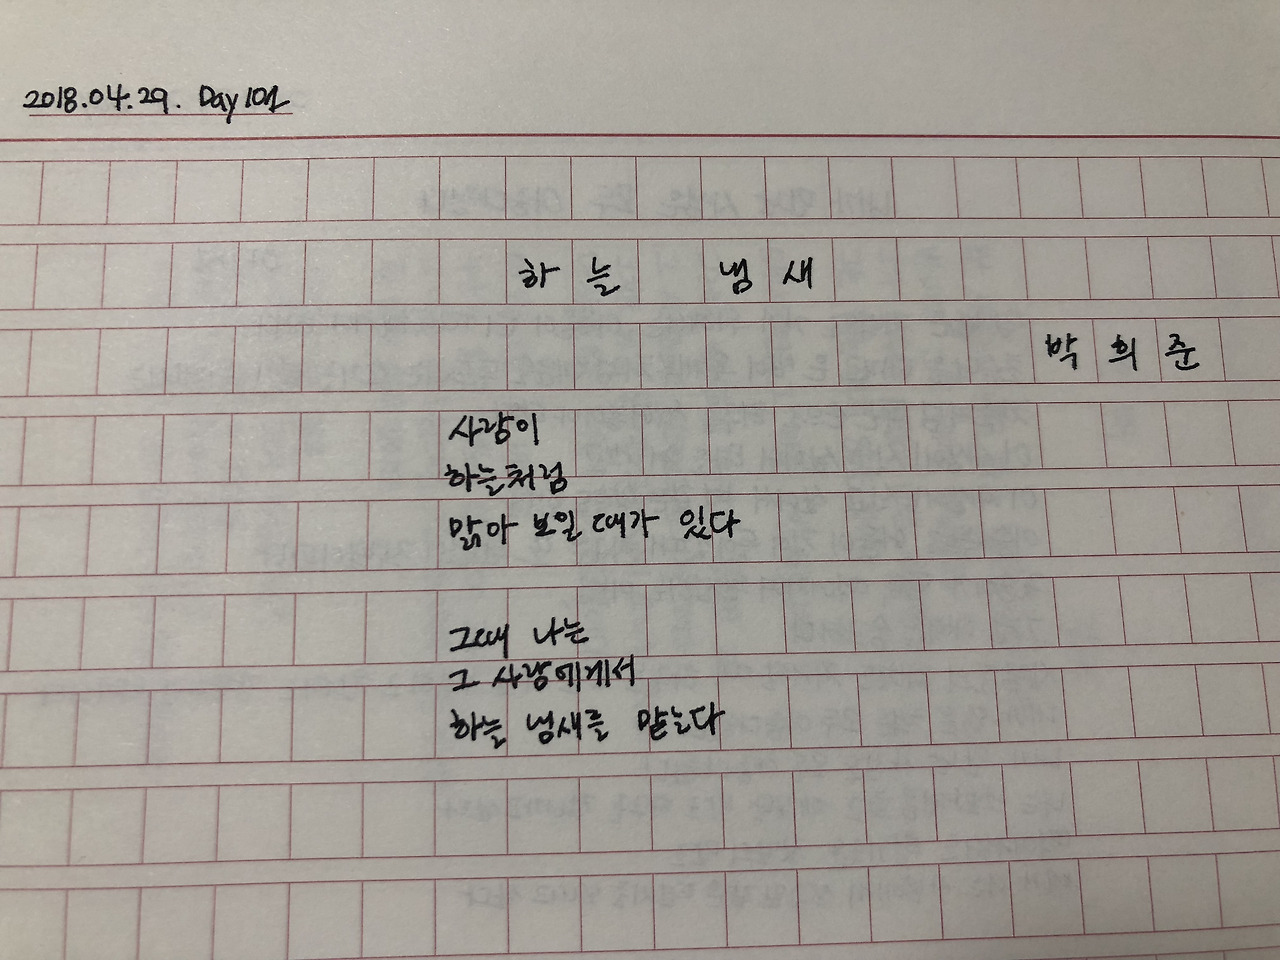 2018.04.29. Day 101
하늘 냄새
박희준
사람이
하늘처럼
맑아 보일 때가 있다
그때 나는
그 사람에게서
하늘 냄새를 맡는다